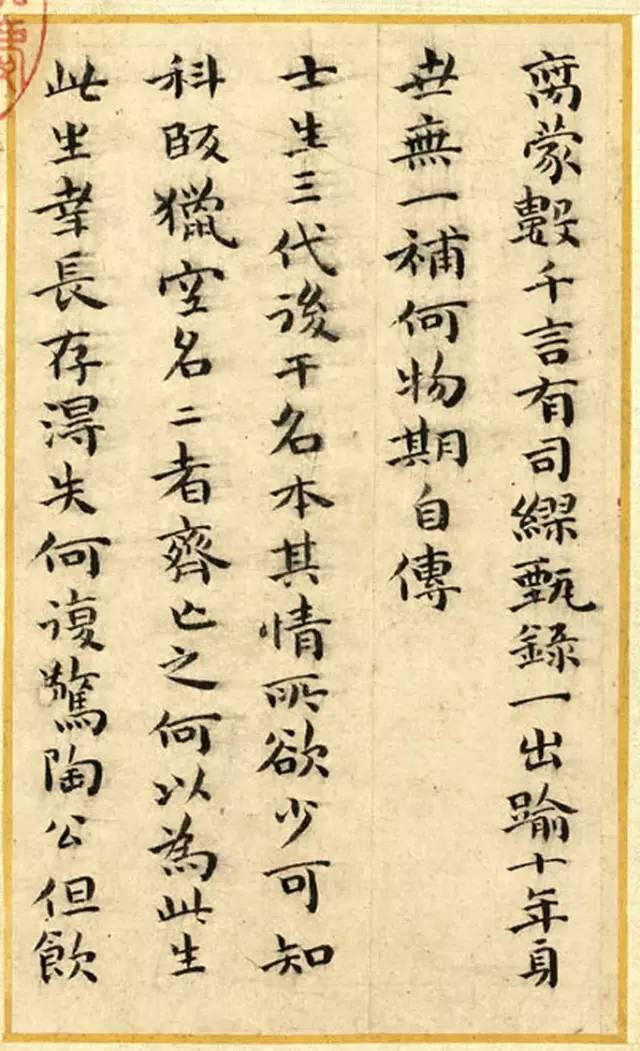 窩蒙數千言有司繆甄錄一出踰十年身
世無一補何物期自傳
士生三代後干名本其情所欲少可知
科段獵空名二者齊亡之何以為此生
此生幸長存淂失何復驚陶公但飲